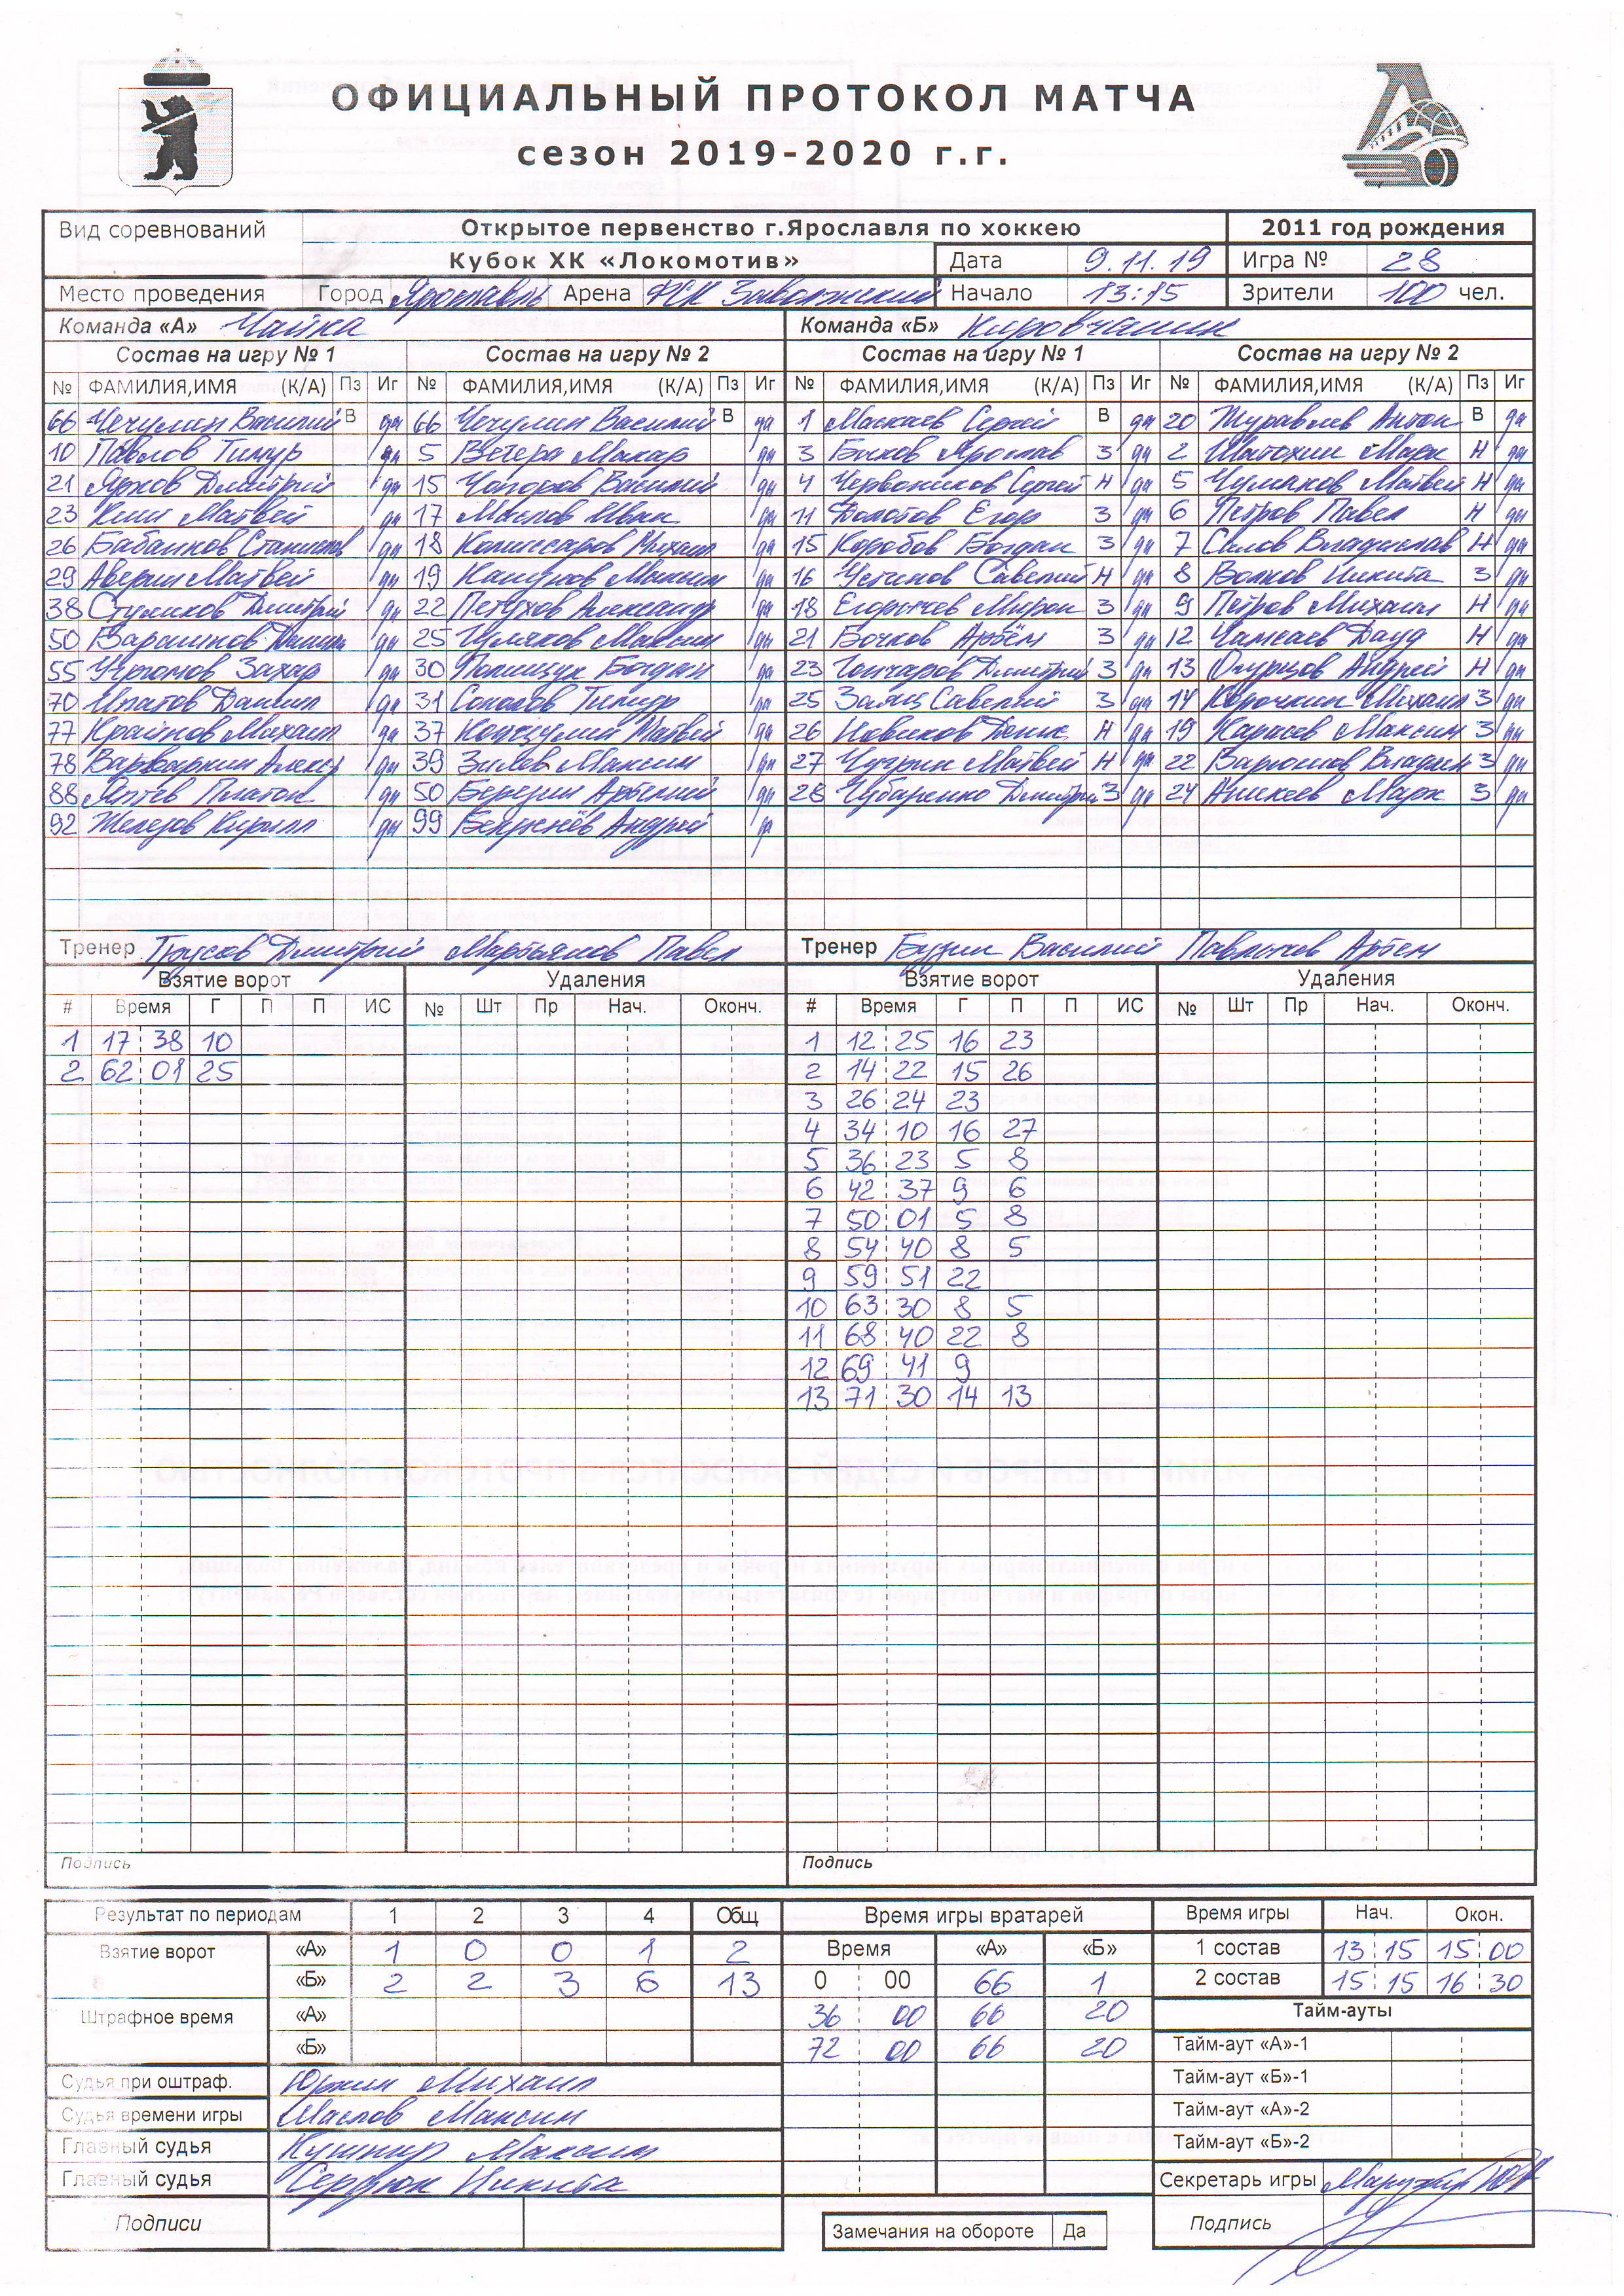 ОФИЦИАЛЬНЫЙ ПРОТОКОЛ МАТЧА
сезон 2019-2020 г.г.
Вид соревнований Открытое первенство г.Ярославля по хоккею 2011 год рождения
Кубок ХК «Локомотив» Дата 9.11.19 Игра № 28
Место проведения Город Ярославль Арена ФСК Заволжский Начало 13:15 Зрители 100 чел.
Команда «А» Чайка Команда «Б» Кировчанин
Состав на игру № 1 Состав на игру № 2 Состав на игру № 1 Состав на игру № 2
№ ФАМИЛИЯ,ИМЯ (К/А) Пз Иг № ФАМИЛИЯ,ИМЯ (К/А) Пз Иг № ФАМИЛИЯ,ИМЯ (К/А) Пз Иг № ФАМИЛИЯ,ИМЯ (К/А) Пз Иг
66 Чечулин Василий В да 66 Чечулин Василий В да 1 Москаев Сергей В да 20 Журавлев Антон В да
10 Павлов Тимур да 5 Ветера Макар да 3 Боков Ярослав З да 2 Шатохин Марк Н да
21 Дмитрий да 15 Василий да 4 Червонников Сергей Н да 5 Чумаков Матвей Н да
23 Ким Матвей да 17 Маслов Иван да 11 Болотов Егор З да 6 Петров Павел Н да
26 Бабанков Станислав да 18 Комиссаров Михаил да 15 Коробов Богдан З да 7 Салов Владислав Н да
29 Аверин Матвей да 19 Кашунов Максим да 16 Устинов Савелий Н да 8 Волков Никита З да
38 Стуликов Дмитрий да 22 Петухов Александр да 18 Егорычев Мирон З да 9 Петров Михаил Н да
50 Данила да 25 Чумаков Максим да 21 Бочков Артём З да 12 Дауд Н да
55 Захар да 30 Полищук Богдан да 23 Гончаров Дмитрий З да 13 Огурцов Андрей Н да
70 Ипатов Даниил да 31 Соколов Тимур да 25 Заяц Савелий З да 14 Корочкин Михаил З да
77 Крайнов Михаил да 37 Матвей да 26 Новиков Денис Н да 19 Карасев Максим З да
78 да 39 Зилов Максим да 27 Чугрин Матвей Н да 22 З да
88 Лаптев Платон да 50 Березин Арсений да 28 Чубаренко Дмитрий З да 24 Аникеев Марк З да
92 Железов Кирилл да 99 Андрей да
Тренер Трусов Дмитрий Мартьянов Павел Тренер Бузин Василий Павлычев Артем
Взятие ворот Удаления Взятие ворот Удаления
# Время Г П П ИС № Шт Пр Нач. Оконч. # Время Г П П ИС № Шт Пр Нач. Оконч.
1 17 38 10 1 12 25 16 23
2 62 01 25 2 14 22 15 26
3 26 24 23
4 34 10 16 27
5 36 23 5 8
6 42 37 9 6
7 50 01 5 8
8 54 40 8 5
9 59 51 22
10 63 30 8 5
11 68 40 22 8
12 69 41 9
13 71 30 14 13
Подпись Подпись
Результат по периодам 1 2 3 4 Общ Время игры вратарей Время игры Нач. Окон.
Взятие ворот «А» 1 0 0 1 2 Время «А» «Б» 1 состав 13 15 15 00
«Б» 2 2 3 6 13 0 00 66 1 2 состав 15 15 16 30
Штрафное время «А» 36 00 66 20 Тайм-ауты
«Б» 72 00 66 20 Тайм-аут «А»-1
Судья при оштраф. Юркин Михаил Тайм-аут «Б»-1
Судья времени игры Маслов Максим Тайм-аут «А»-2
Главный судья Кушнир Максим Тайм-аут «Б»-2
Главный судья Сердюк Никита Секретарь игры
Подписи Замечания на обороте Да Подпись